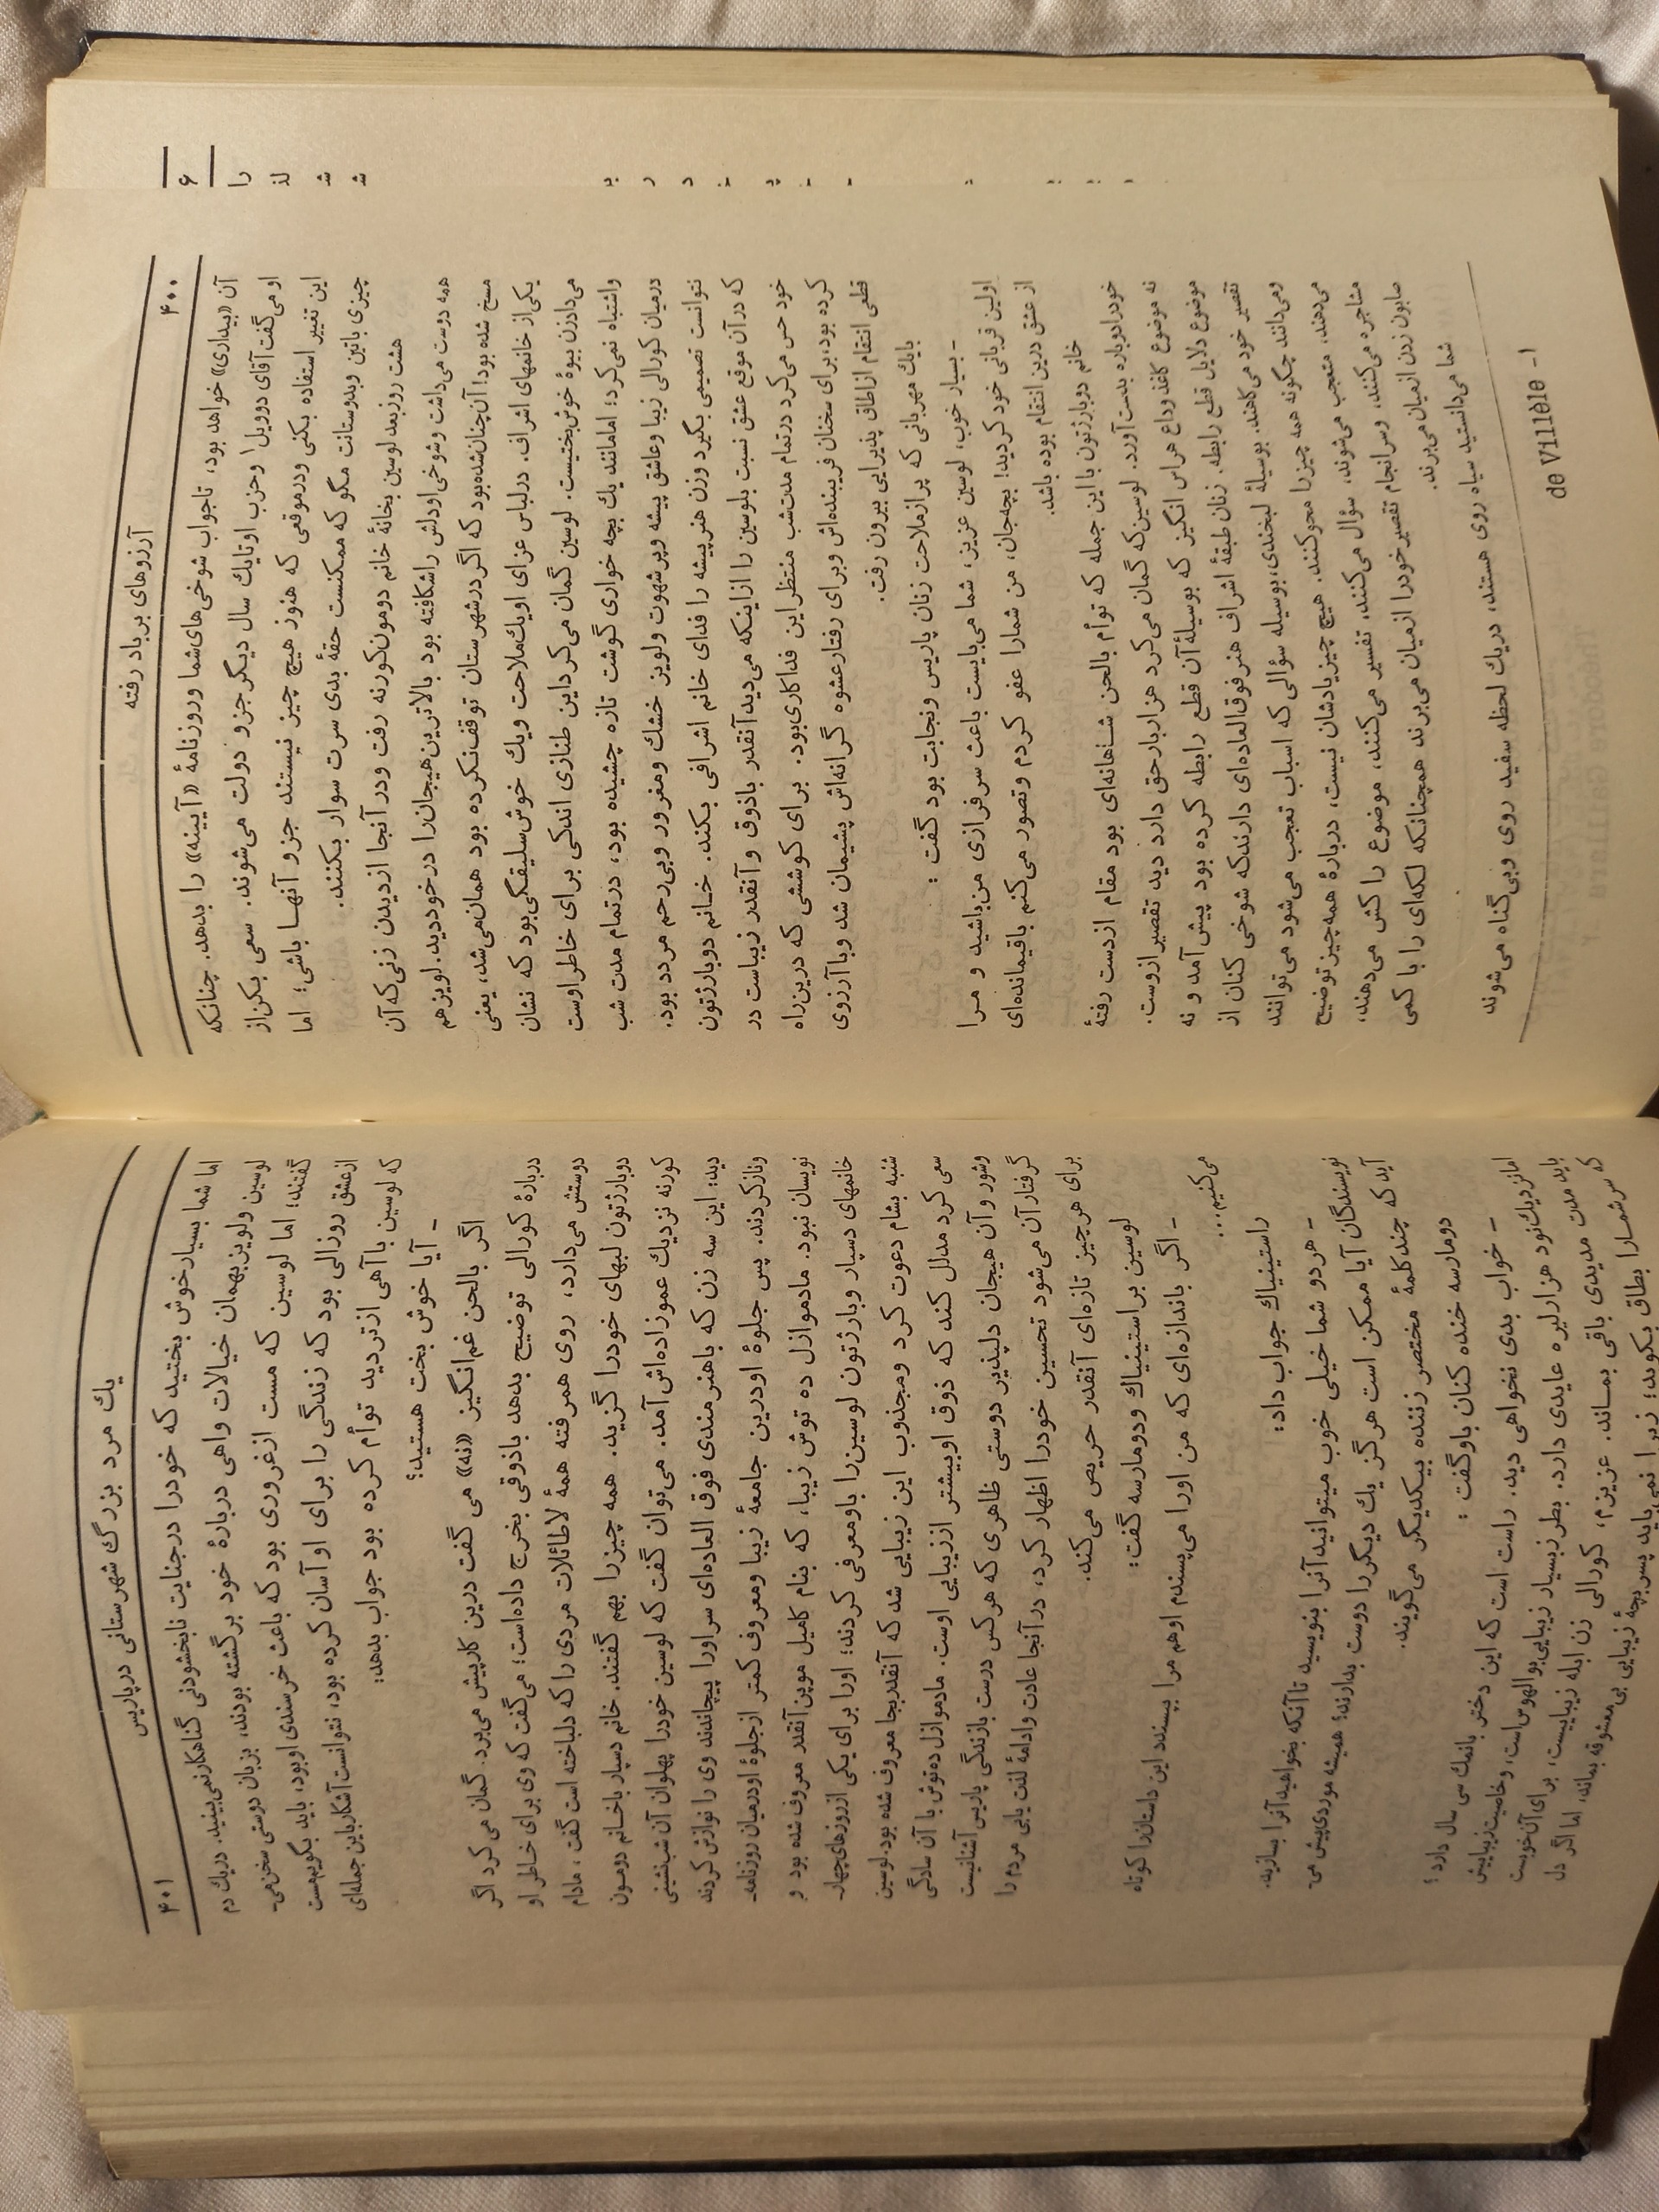 ۴۰۰
آرزوهای بر باد رفته
آن «بیداری» خواهد بود، تاجواب شوخی‌های‌شما وروزنامهٔ «آیینه» را بدهد. چنانکه
او می‌گفت آقای دوویل۱ وحزب اوتایك سال دیگر جزو دولت می‌شوند. سعی بکن‌از
این تغییر استفاده بکنی ودرموقعی که هنوز هیچ چیز نیستند جزو آنهـا باشی؛ اما
چیزی باتین وبدوستانت مگو که ممکنست حقهٔ بدی سرت سوار بکنند.
هشت روزبعد لوسین بخانهٔ خانم دومون‌کورنه رفت ودر آنجا ازدیدن زنی‌که‌آن
همه دوست می‌داشت وشوخی‌اودلش راشکافته بود بالاترین‌هیجان‌را درخوددید. لویزهم
مسخ شده بود! آن‌چنان‌شده‌بود که اگردرشهرستان توقف‌نکرده بود همان‌می‌شد، یعنی
یکی‌از خانمهای اشراف. درلباس عزای اویك‌ملاحت ویك خوش‌سلیقگی‌بود که نشان
می‌دادزن بیوهٔ خوش‌بختیست. لوسین گمان می‌کرداین طنازی اندکی برای خاطراوست
واشتباه نمی‌کرد؛ امامانند یك بچه خواری گوشت تازه چشیده بود، درتمام مدت شب
درمیان کورالی زیبا وعاشق پیشه وپرشهوت ولویز خشك ومغرور وبی‌رحم مردد بود.
نتوانست تصمیمی بگیرد وزن هنرپیشه را فدای خانم اشرافی بکند. خـانم دوبارژتون
که درآن موقع عشق نسبت بلوسین را ازاینکه می‌دیدآنقدر باذوق وآنقدر زیباست در
خود حس می‌کرد درتمام مدت‌شب منتظر این فداکاری‌بود. برای کوششی که درین‌راه
کرده بود،برای سخنان فریبنده‌اش وبرای رفتارعشوه گرانه‌اش پشیمان شد وبا آرزوی
قطعی انتقام ازاطاق پذیرایی بیرون رفت.
بایك مهربانی که پرازملاحت زنان پاریس ونجابت بود گفت :
- بسیار خوب، لوسین عزیز، شما می‌بایست باعث سرفرازی من‌باشید و مـرا
اولین قربانی خود کردید! بچه‌جان، من شمارا عفو کردم وتصور می‌کنم باقیمانده‌ای
از عشق درین‌انتقام بوده باشد.
خانم دوبارژتون با این جمله که توأم بالحن شـاهانه‌ای بود مقام ازدست رفتهٔ
خودرادوباره بدست‌آورد. لوسین‌که گمان می‌کرد هزاربارحق دارد دید تقصیرازوست.
نه موضوع کاغذ وداع هراس انگیز که بوسیلهٔ‌آن قطع رابطه کرده بود پیش آمد و نه
موضوع دلایل قطع رابطه. زنان طبقهٔ اشراف هنرفوق‌العاده‌ای دارندکه شوخی کنان از
تقصیر خود می‌کاهند. بوسیلهٔ لبخندی،بوسیله سؤالی که اسباب تعجب می‌شود می‌توانند
ومی‌دانند چگونه همه چیزرا محوکنند. هیچ چیزیادشان نیست، دربارهٔ همه‌چیزتوضیح
می‌دهند، متعجب می‌شوند، سؤال می‌کنند، تفسیر می‌کنند، موضوع را کش می‌دهند،
مشاجره می‌کنند، وسرانجام تقصیرخودرا ازمیان می‌برند همچنانکه لکه‌ای را با کمی
صابون زدن ازمیان می‌برند.
شما می‌دانستید سیاه روی هستند، دریك لحظه سفید روی وبی‌گناه می‌شوند
۱- de Villèle
یك مرد بزرگ شهرستانی درپاریس
۴۰۱
اما شما بسیارخوش بختید که خودرا درجنایت نابخشودنی گناهکارنمی‌بینید. دریك دم
لوسین ولویزبهمان خیالات واهی دربارهٔ خود برگشته بودند، بزبان دوستی سخن‌می-
گفتند؛ اما لوسین که مست ازغروری بود که باعث خرسندی اوبود، باید بگویم‌مست
ازعشق روزالی بود که زندگی را برای اوآسان کرده بود، نتوانست آشکاربااین جمله‌ای
که لوسین باآهی ازتردید توأم کرده بود جواب بدهد:
- آیا خوش بخت هستید؟
اگر بالحن غم‌انگیز «نه» می گفت درین کارپیش می‌برد. گمان می کرد اگر
دربارهٔ کورالی توضیح بدهد باذوقی بخرج داده‌است؛ می‌گفت که وی برای خـاطر او
دوستش می‌دارد، روی همرفته همهٔ لاطائلات مردی را که دلباخته است گفت ، مادام
دوبارژتون لبهای خودرا گزید. همه چیزرا بهم گفتند. خانم دسپار باخـانم دومـون
کورنه نزدیك عموزاده‌اش‌آمد. می‌توان گفت که لوسین خودرا پهلوان آن شب‌نشینی
دید: این سه زن که باهنرمندی فوق العاده‌ای سراورا پیچاندند وی را نوازش کردند
ونازکردند. پس جلوهٔ اودرین جامعهٔ زیبا ومعروف کمتر ازجلوهٔ اودرمیان روزنامه-
نویسان نبود. مادموازل ده توش زیبا، که بنام کامیل موپن‌آنقدر معروف شده بود و
خانمهای دسپار وبارژتون لوسین‌را باومعرفی کردند؛ اورا برای یکی ازروزهای‌چهار-
شنبه بشام دعوت کرد ومجذوب این زیبایی شد که آنقدربجا معروف شده بود.لوسین
سعی کرد مدلل کند که ذوق اوبیشتر اززیبایی اوست. مادموازل ده‌توش با آن سادگی
وشور وآن هیجان دلپذیر دوستی ظاهری که هرکس درست بازندگی پاریس آشنانیست
گرفتارآن می‌شود تحسین خودرا اظهار کرد، درآنجا عادت وادامهٔ لذت یابی مردم را
برای هرچیز تازه‌ای آنقدر حریص می‌کند.
لوسین براستینیاك ودومارسه گفت:
- اگر باندازه‌ای که من اورا می‌پسندم اوهم مرا بپسندد این داستان‌را کوتاه
می‌کنیم...
راستینیاك جواب داد:
- هردو شما خیلی خوب میتوانید آنرا بنویسید تاآنکه بخواهیدآنرا بسازید.
نویسندگان آیا ممکن است هرگز یك دیگررا دوست بدارند؟ همیشه موردی‌پیش می-
آید که چند کلمهٔ مختصر زننده بیکدیگر می‌گویند.
دومارسه خنده کنان باوگفت :
- خواب بدی نخواهی دید. راست است که این دختر بانمك سی سال دارد؛
امانزدیك‌نود هزارلیره عایدی دارد. بطرزبسیار زیبایی‌بوالهوس‌است، وخاصیت‌زیباییش
باید مدت مدیدی باقی بمـاند. عزیزم، کورالی زن ابله زیباییست، برای آن‌خوبست
که سرشمـارا بطاق بکوبد؛ زیرا نمی‌باید پسربچهٔ زیبایی بی‌معشوقه بماند، اما اگر دل